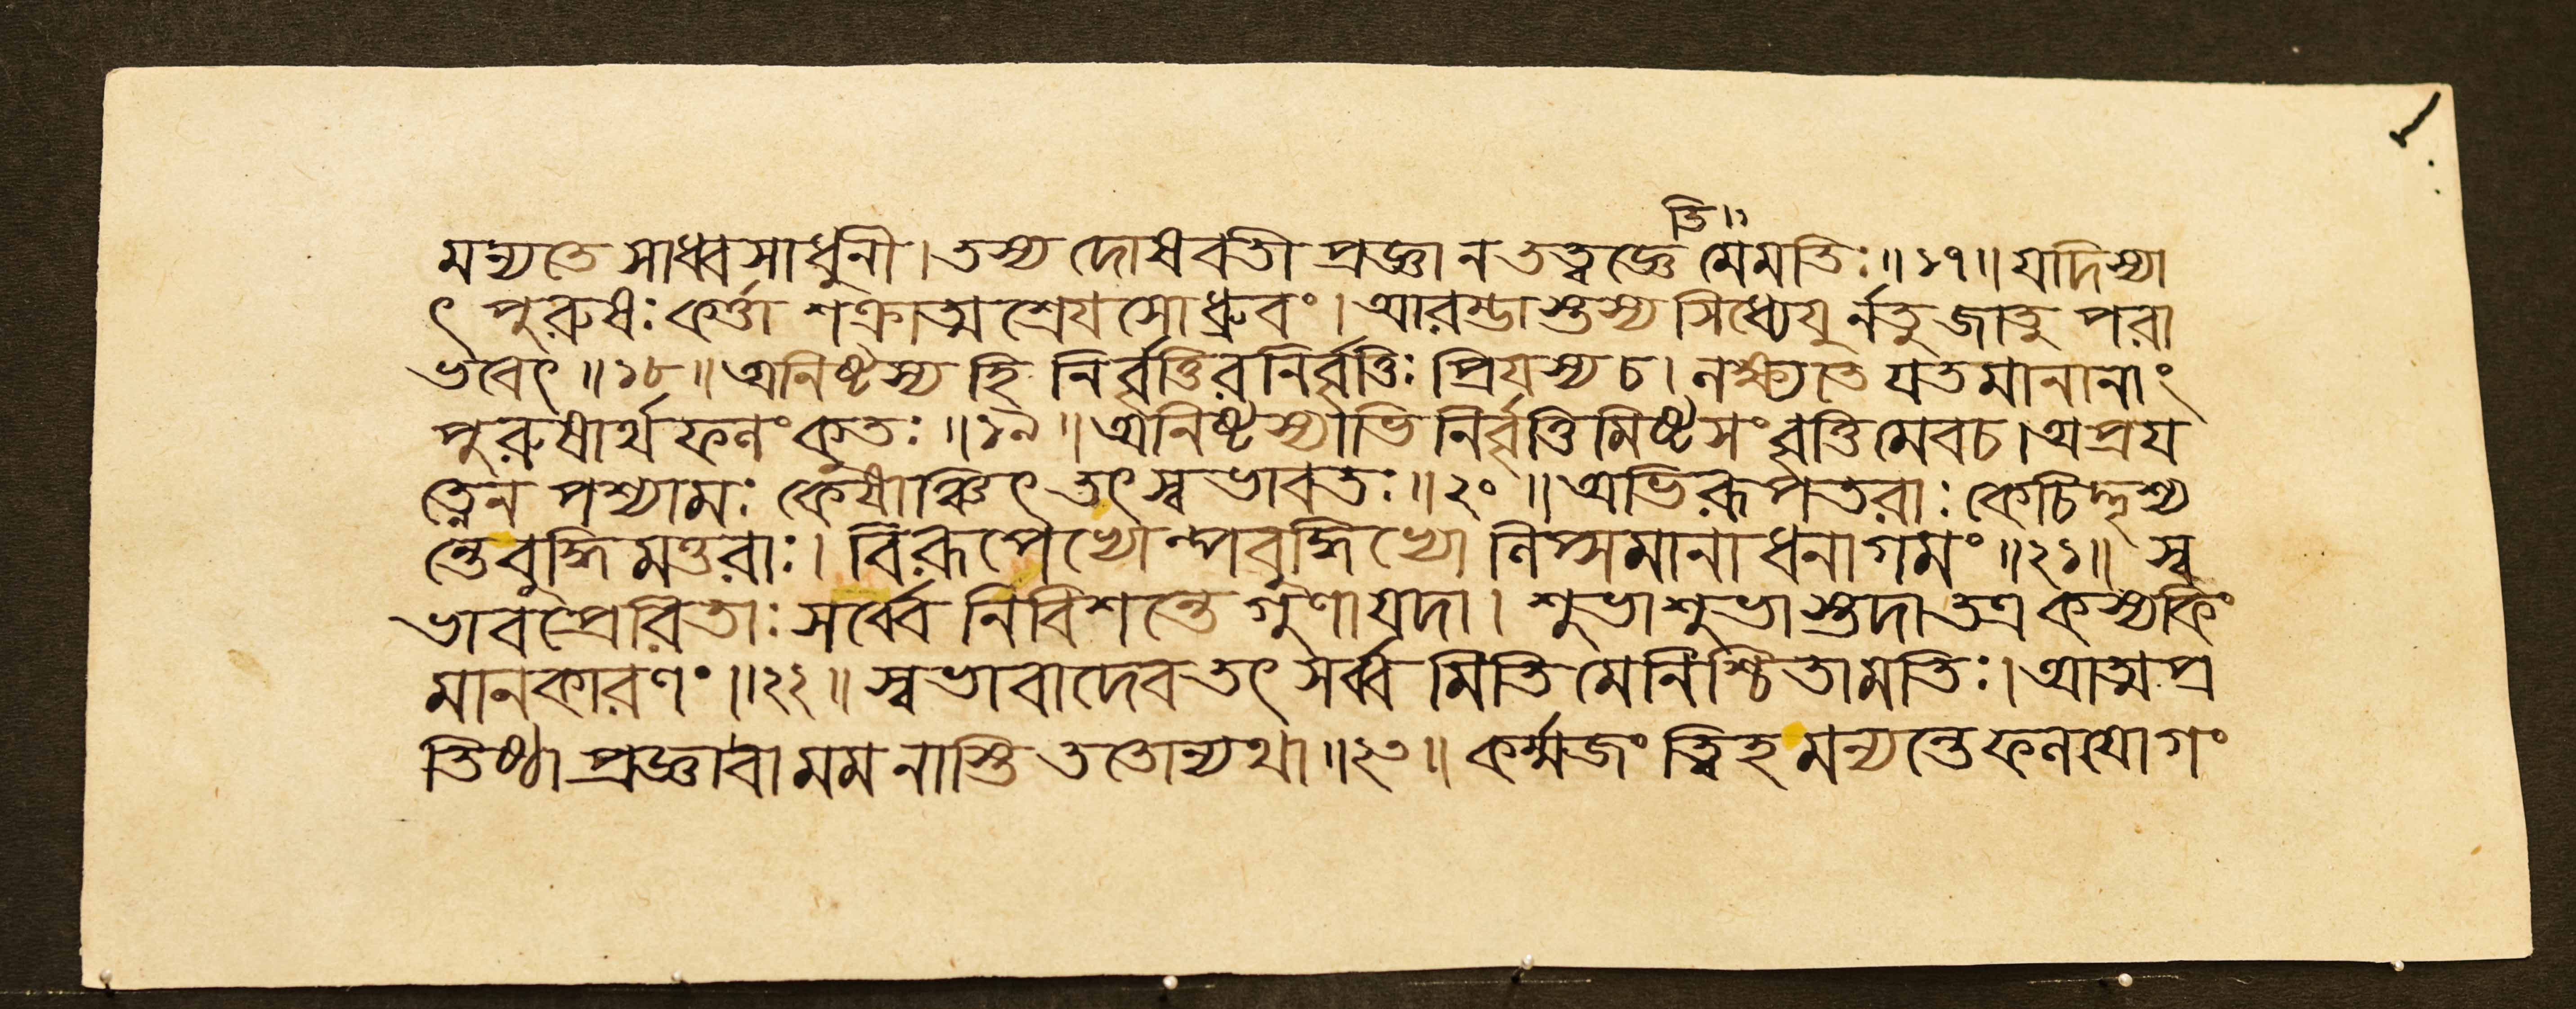 তি॥
মন্যতে সাধ্বসাধুনী। তস্য দোষবতী প্রজ্ঞা ন তত্ত্বজ্ঞে মেমতিঃ॥১৭॥ যদিস্যা
ৎ পুরুষঃ কর্ত্তা শক্রাত্ম শ্রেয সোধ্রুবং। আরম্ভাস্তস্য সিধ্যেযু র্নতু জাতু পরা
ভবেৎ॥১৮॥ অনিষ্টস্য হি নির্বৃত্তির নির্বৃত্তিঃ প্রিযস্য চ। লক্ষ্যতে যতমানানাং
পুরুষার্থ ফলং কুতঃ॥১৯॥ অনিষ্টস্যাভি নির্বৃত্তি মিষ্টসংবৃত্তি মেবচ। অপ্রয
ত্নেন পশ্যামঃ কেষাঞ্চিৎ তৎ স্বভাবতঃ॥২০॥ অভিরূপতরাঃ কেচিদ্দৃশ্য
ন্তেবুদ্ধি মত্তরাঃ। বিরূপেভ্যোল্পবুদ্ধিভ্যো লিপ্সমানা ধনাগমং॥২১॥ স্ব
ভাবপ্রেরিতাঃ সর্ব্বে নিবিশন্তে গুণাযদা। শুভাশুভাস্তদা তত্র কস্যকিং
মানকারণং॥২২॥ স্বভাবাদেবতৎ সর্ব্ব মিতি মেনিশ্চিতামতিঃ। আত্মপ্র
তিষ্ঠা প্রজ্ঞাবা মম নাস্তি ততোন্যথা॥২৩॥ কর্ম্মজং ত্বিহ মন্যন্তে ফলযোগং